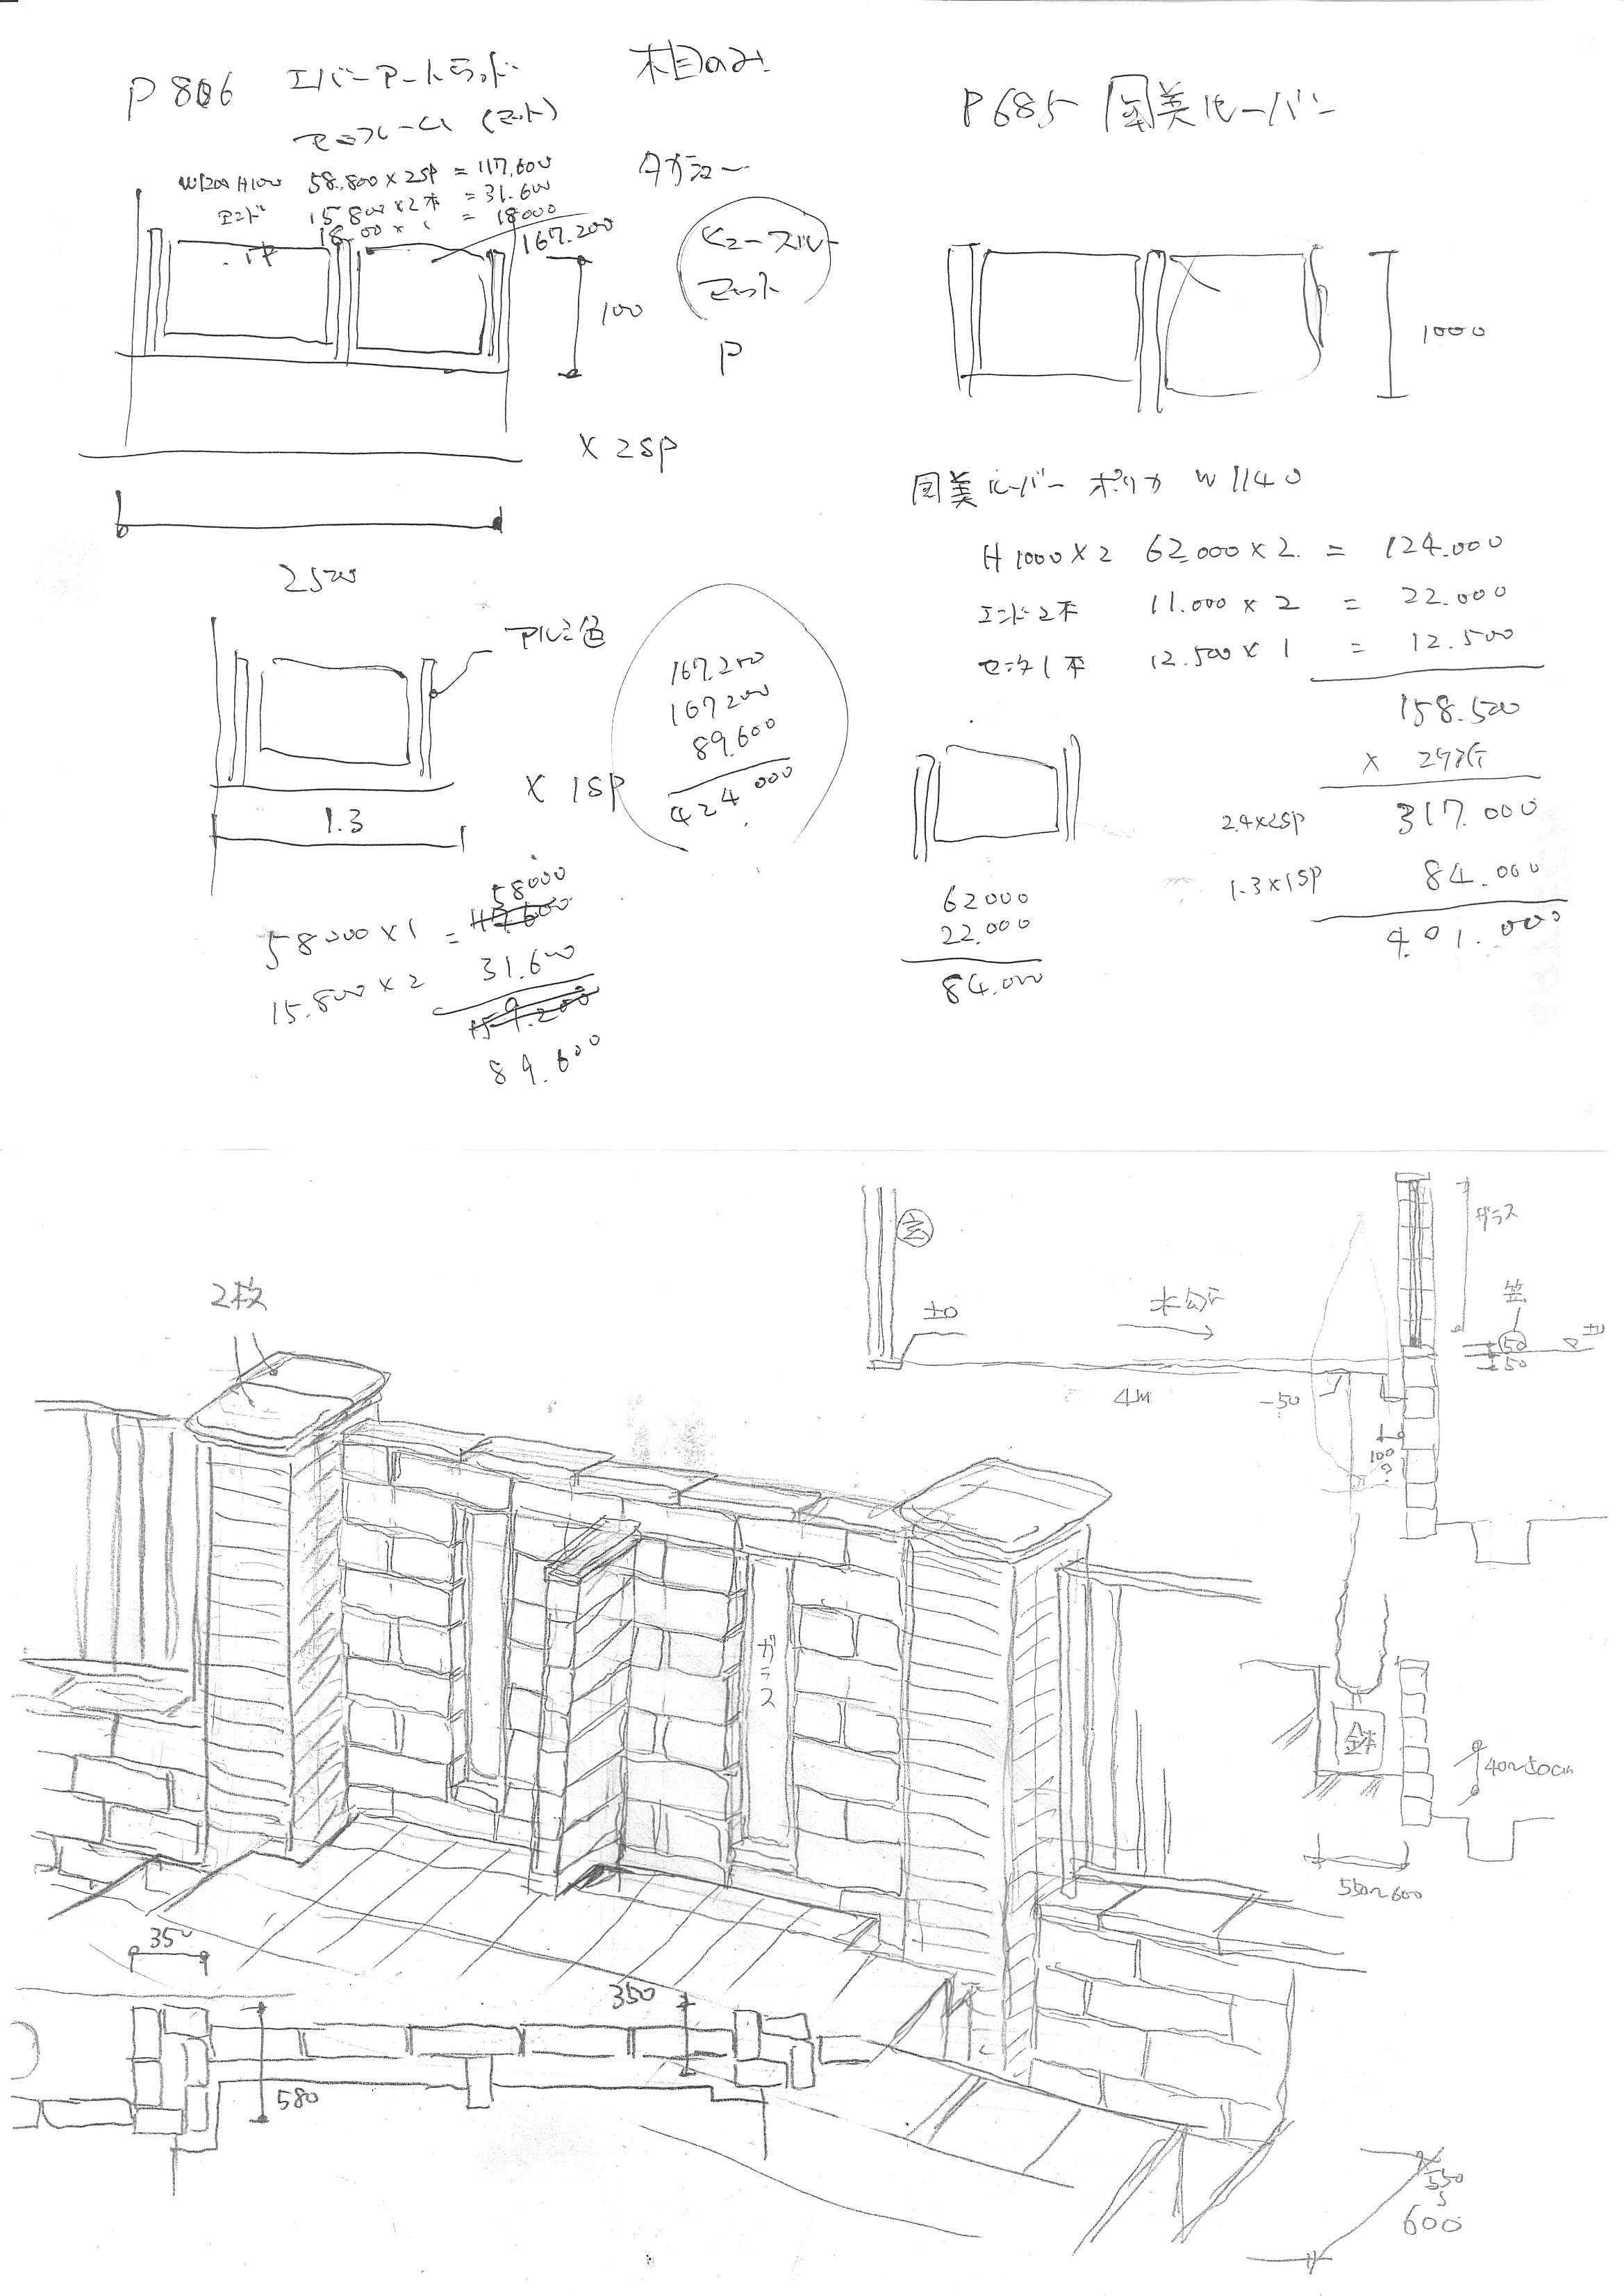 P 806 エバーアートラッド
木目のみ!
センフレーム (マット)
W1200 H1000 58.800 × 2SP = 117.600
エンド 15.800 × 2本 = 31.600
= 18000
167.200
タカショー
マット
P
100
× 2SP
2500
アルミ色
× 1SP
1.3
167.200
167200
89.600
424.000
58000
58000 × 1 =
15.800 × 2 31.600
89.600
P685 国美ルーバー
1000
国美ルーバー ポリカ W1140
H1000×2 62.000×2. = 124.000
エンド2本 11.000 × 2 = 22.000
センタ1本 12.500 × 1 = 12.500
158.500
×
2.4×2SP 317.000
1.3×1SP 84.000
401.000
62000
22.000
84.000
2枚
玄
±0
水勾配
4M
-50
ガラス
笠
50
50
100
?
ガラス
鉢
40~50cm
550~600
350
580
350
600